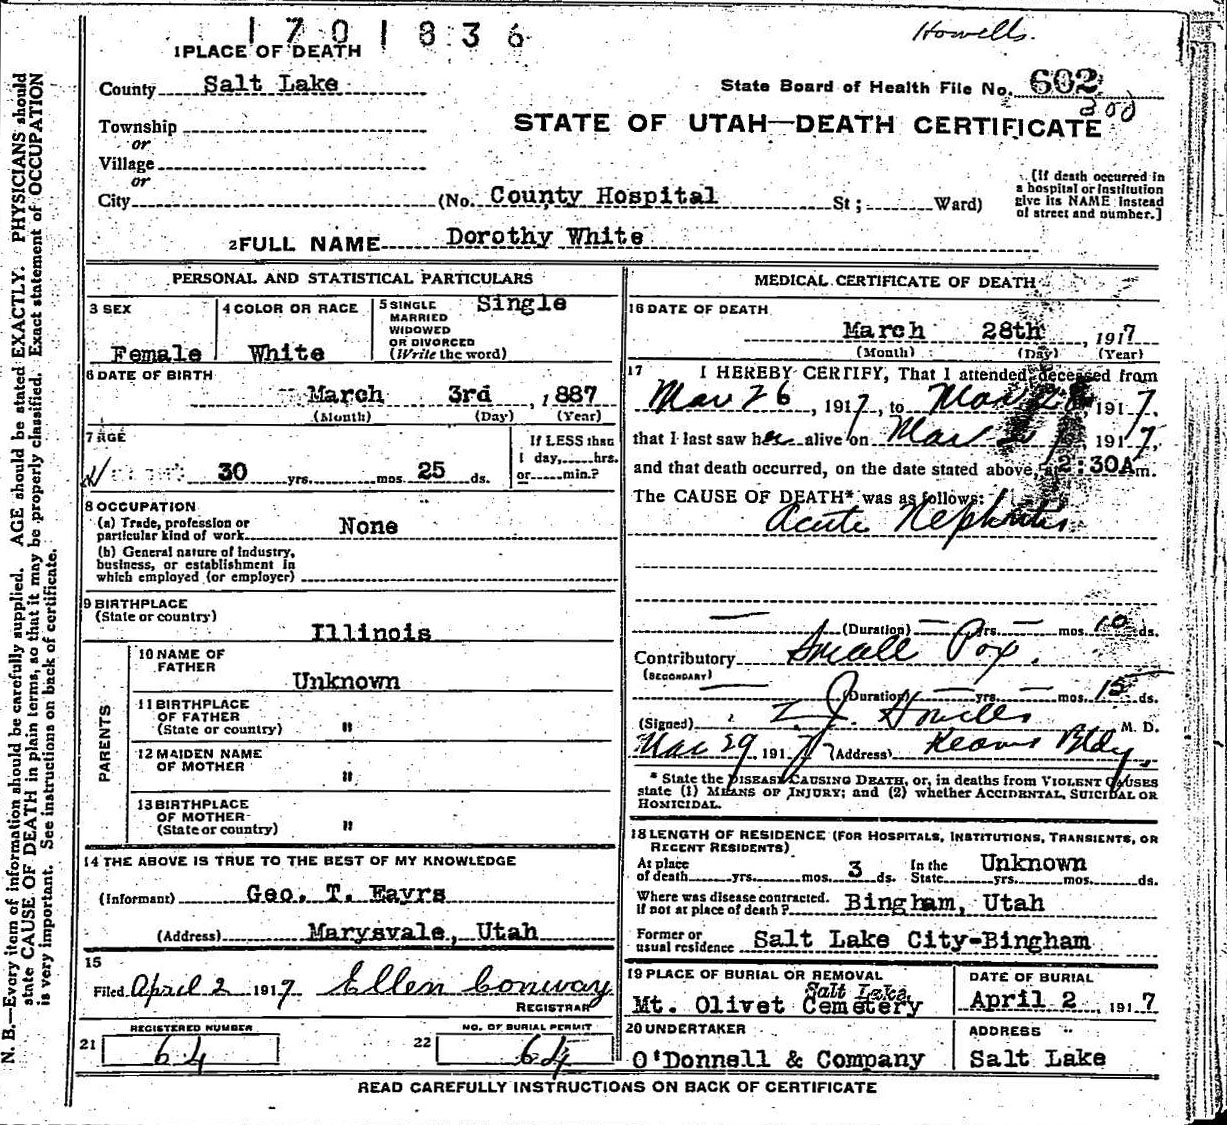 1701836
Howells.
1 PLACE OF DEATH
County Salt Lake
State Board of Health File No. 602
200
Township
or
STATE OF UTAH—DEATH CERTIFICATE
Village
or
City (No. County Hospital St; Ward)
(If death occurred in
a hospital or institution
give its NAME instead
of street and number.]
2 FULL NAME Dorothy White
PERSONAL AND STATISTICAL PARTICULARS
3 SEX
Female
4 COLOR OR RACE
White
5 SINGLE
MARRIED
WIDOWED
OR DIVORCED
(Write the word)
Single
6 DATE OF BIRTH
March 3rd, 1887
(Month) (Day) (Year)
7 AGE
30 yrs. mos. 25 ds.
If LESS than
1 day, hrs.
or min.?
8 OCCUPATION
(a) Trade, profession or
particular kind of work None
(b) General nature of industry,
business, or establishment in
which employed (or employer)
9 BIRTHPLACE
(State or country)
Illinois
PARENTS
10 NAME OF
FATHER
Unknown
11 BIRTHPLACE
OF FATHER
(State or country) "
12 MAIDEN NAME
OF MOTHER "
13 BIRTHPLACE
OF MOTHER
(State or country) "
14 THE ABOVE IS TRUE TO THE BEST OF MY KNOWLEDGE
(Informant) Geo. T. Eayrs
(Address) Marysvale, Utah
15
Filed April 2 1917 Ellen Conway
REGISTRAR
REGISTERED NUMBER
21 64
NO. OF BURIAL PERMIT
22 64
MEDICAL CERTIFICATE OF DEATH
16 DATE OF DEATH
March 28th, 1917
(Month) (Day) (Year)
17 I HEREBY CERTIFY, That I attended deceased from
Mar 26, 1917, to Mar 28 1917.
that I last saw her alive on Mar 1917,
and that death occurred, on the date stated above, at 2:30A m.
The CAUSE OF DEATH* was as follows:
Acute Nephritis
(Duration) — yrs. — mos. 10 ds.
Contributory Small Pox.
(SECONDARY)
(Duration) — yrs. — mos. 15 ds.
(Signed) J. Howells M. D.
Mar 29 1917 (Address) Kearns Bldg.
* State the DISEASE CAUSING DEATH, or, in deaths from VIOLENT CAUSES
state (1) MEANS OF INJURY; and (2) whether ACCIDENTAL, SUICIDAL OR
HOMICIDAL.
18 LENGTH OF RESIDENCE (FOR HOSPITALS, INSTITUTIONS, TRANSIENTS, OR
RECENT RESIDENTS)
At place
of death yrs. mos. 3 ds.
In the
State Unknown yrs. mos. ds.
Where was disease contracted.
if not at place of death? Bingham, Utah
Former or
usual residence Salt Lake City-Bingham
19 PLACE OF BURIAL OR REMOVAL
Salt Lake
Mt. Olivet Cemetery
DATE OF BURIAL
April 2, 1917
20 UNDERTAKER
O'Donnell & Company
ADDRESS
Salt Lake
READ CAREFULLY INSTRUCTIONS ON BACK OF CERTIFICATE
N. B.—Every item of information should be carefully supplied. AGE should be stated EXACTLY. PHYSICIANS should
state CAUSE OF DEATH in plain terms, so that it may be properly classified. Exact statement of OCCUPATION
is very important. See instructions on back of certificate.